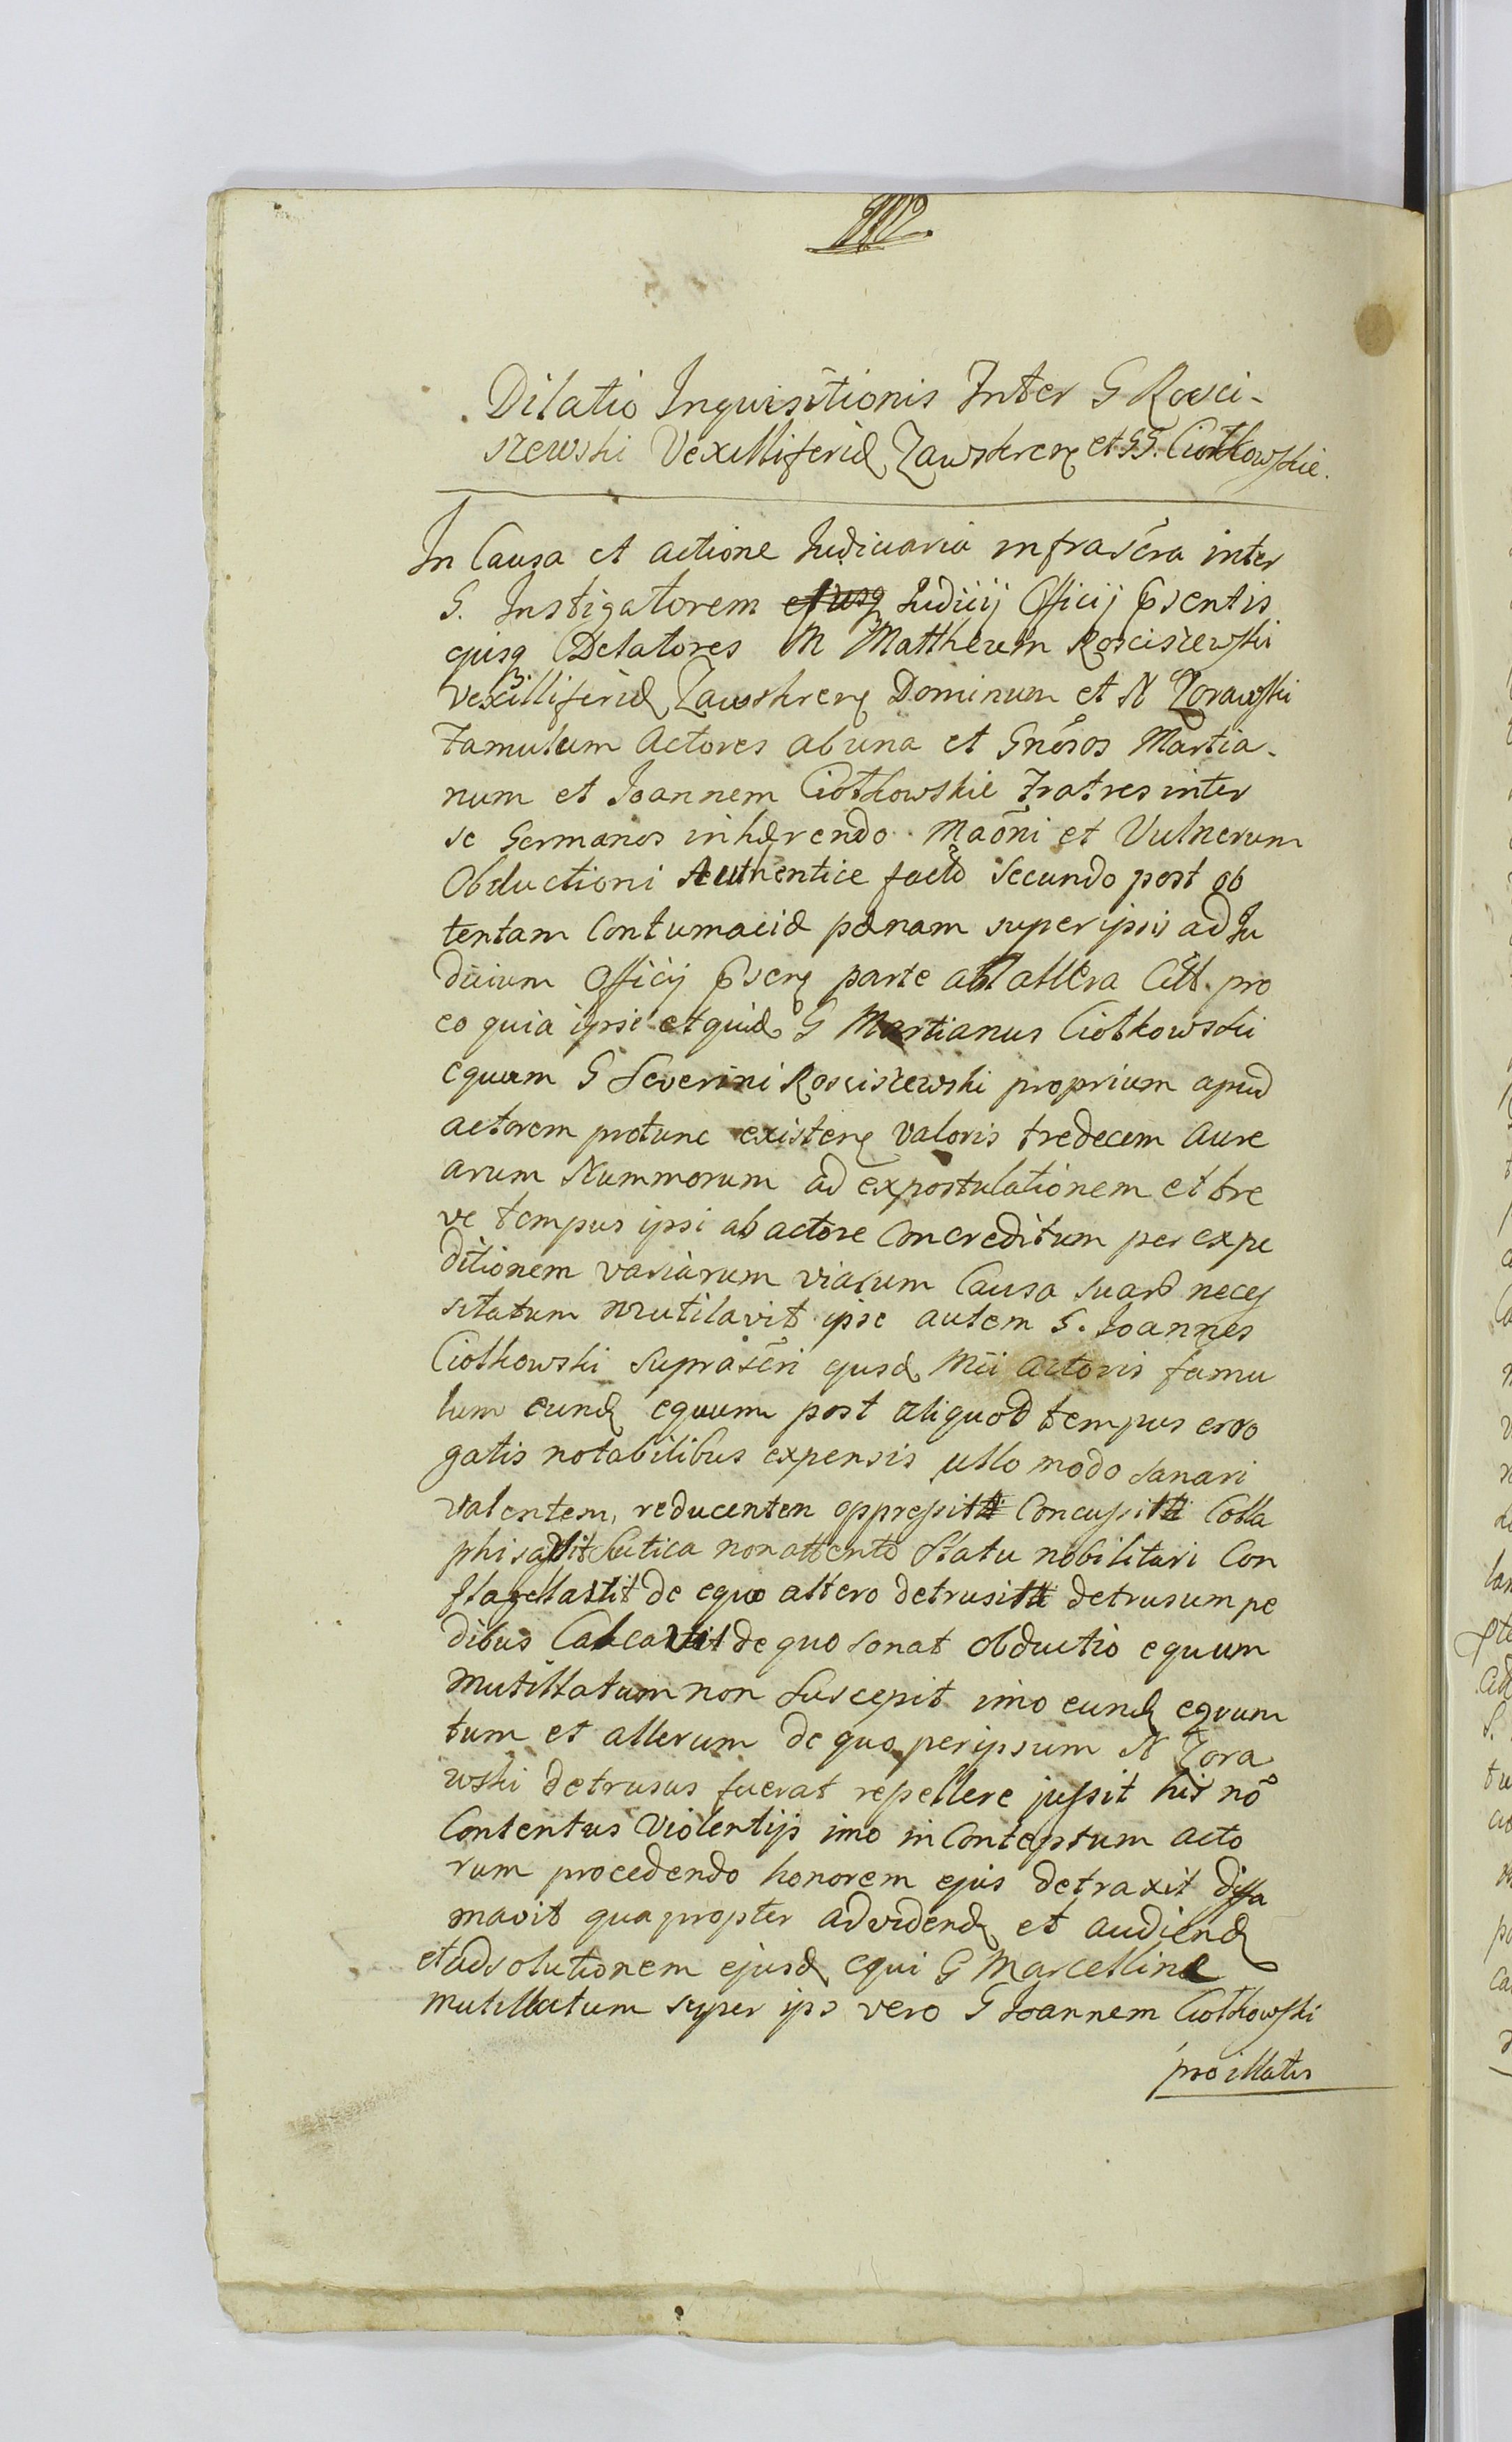 Dilatio Inquisitionis Inter G Rosci-
szewski Vexilliferid Zawskreng et GG. Ciotkowskie.
In Causa et actione Iudiciaria infrascra inter
G. Instigatorem Iudicij Officij Psentis
ejusq Delatores M Mattheum Rosciszewski
Vexilliferid Zawskreng Dominum et N Zorawski
Famulum Actores ab una et Gnosos Martia-
num et Joannem Ciotkowskie Fratres inter
se Germanos inhærendo Maoni et Vulnerum
Obductioni Authentice facto Secundo post ob
tentam Contumaciæ pænam super ipsis ad Iu
dicium Officij Pseng parte ab altera Citt. pro
eo quia ipsi et quid G Martianus Ciotkowski
equum G Severini Rosciszewski proprium apud
actorem protunc existeng valoris tredecem Aure
arum Nummorum ad expostulationem et bre
ve tempus ipsi ab actore Concreditum per expe
ditionem variarum viarum Causa suard neces
sitatum mutilavit ipse autem G. Joannes
Ciotkowski Suprascri ejusd Mci Actoris famu
lum eund equum post aliquod tempus erro
gatis notabilibus expensis ullo modo sanari
valentem, reducentem oppressit Concussit Colla
phisavit Scutica non attento Statu nobilitari Con
flagellavit de equo altero detrusit detrusum pe
dibus Calcavit de quo sonat obductio equum
mutillatum non Suscepit imo eund equum
tum et alterum de quo per ipsum N Zora
wski detrusus fuerat repellere jussit his no
Contentus Violentijs imo in Conteptum acto
rum procedendo honorem ejus detraxit diffa
mavit qua propter ad vidend et audiend
et ad solutionem ejusd equi G Marcelline
mutillatum super ips vero G Joannem Ciotkowski
pro illatis